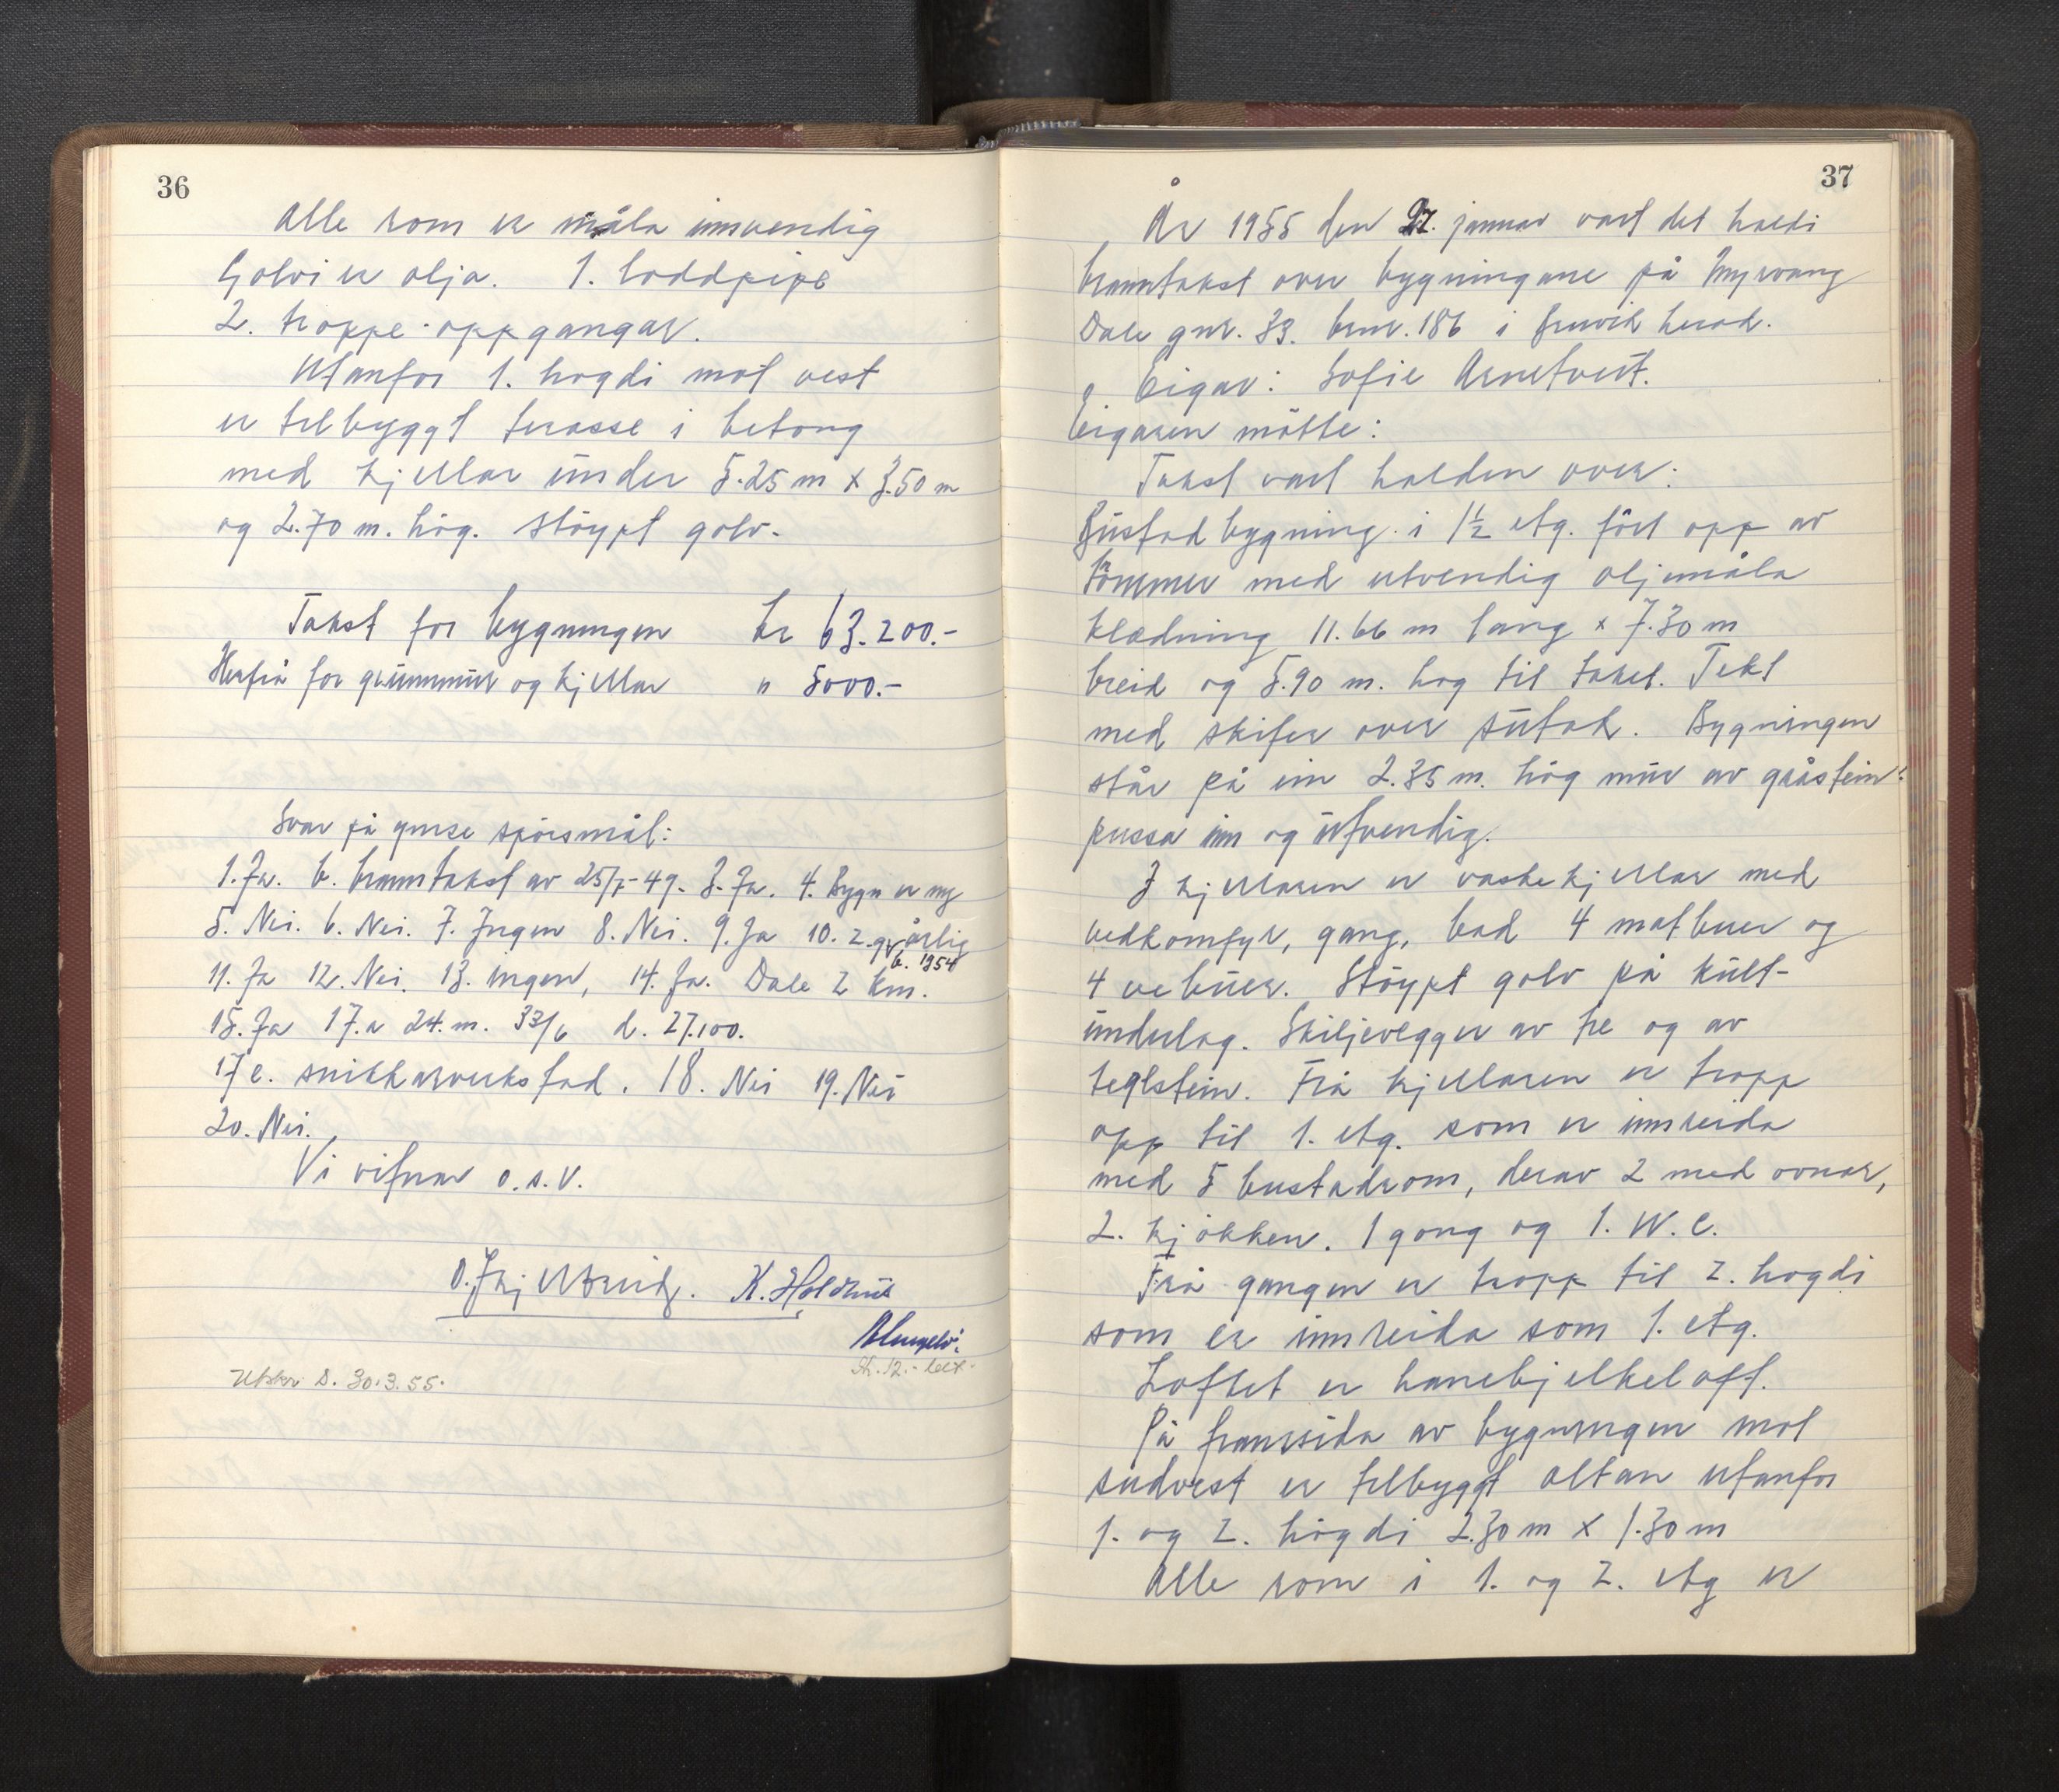 36
Alle rom er måla innvendig
Golvi er olja. 1. loddpipe
2. troppe-oppgangar.
Utanfor 1. høgdi mot vest
er tilbyggt terasse i betong
med kjellar under 5.25 m x 3.50 m
og 2.70 m. høg. Støypt golv.
Takst for bygningen kr 63.200.-
Herfrå for grunnmur og kjellar " 5000.-
Svar på ymse spørsmål:
1. Ja. b. branntakst av 25/7-49. 3. Ja. 4. Bygn er ny
5. Nei. 6. Nei. 7. Ingen 8. Nei. 9. Ja 10. 2. gr årlig
b. 1954
11. Ja 12. Nei. 13. ingen, 14. Ja. Dale 2 km.
15. Ja 17.a 24. m. 33/6 d. 27.100.
17 e. snikkarverkstad. 18. Nei 19. Nei
20. Nei.
Vi vitnar o.s.v.
K. Holdhus
Utskr. S. 30.3.55.
37
År 1955 den 27. januar vart det haldi
branntakst over bygningane på Myrvang
Dale gnr. 33. brnr. 186 i Bruvik herad.
Eigar: Sofie Arnetveit.
Eigaren møtte:
Takst vart halden over:
Bustadbygning i 1½ etg. ført opp av
tømmer med utvendig oljemåla
klædning 11.66 m lang x 7.30 m
breid og 5.90 m. høg til taket. Tekt
med skifer over sutak. Bygningen
står på ein 2.35 m. høg mur av gråstein
pussa inn og utvendig.
I kjellaren er vaskekjellar med
vedkomfyr, gang, bad 4 matbuer og
4 vebuer. Støypt golv på kult-
underlag. Skiljevegger av tre og av
teglstein. Frå kjellaren er tropp
opp til 1. etg. som er innreida
med 5 bustadrom, derav 2 med ovnar,
2. kjøkken. 1 gong og 1. W.C.
Frå gangen er tropp til 2. høgdi
som er innreida som 1. etg.
Loftet er hanebjelkeloft.
På framsida av bygningen mot
sudvest er tilbyggt altan utanfor
1. og 2. høgdi 2.30 m x 1.30 m
Alle rom i 1. og 2. etg er